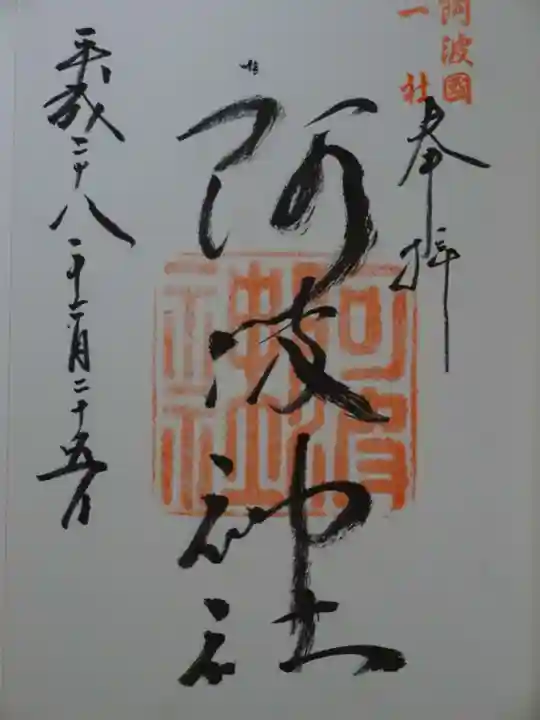 阿波國
一社
奉拝
阿波神社
平成二十八年
月二十五日